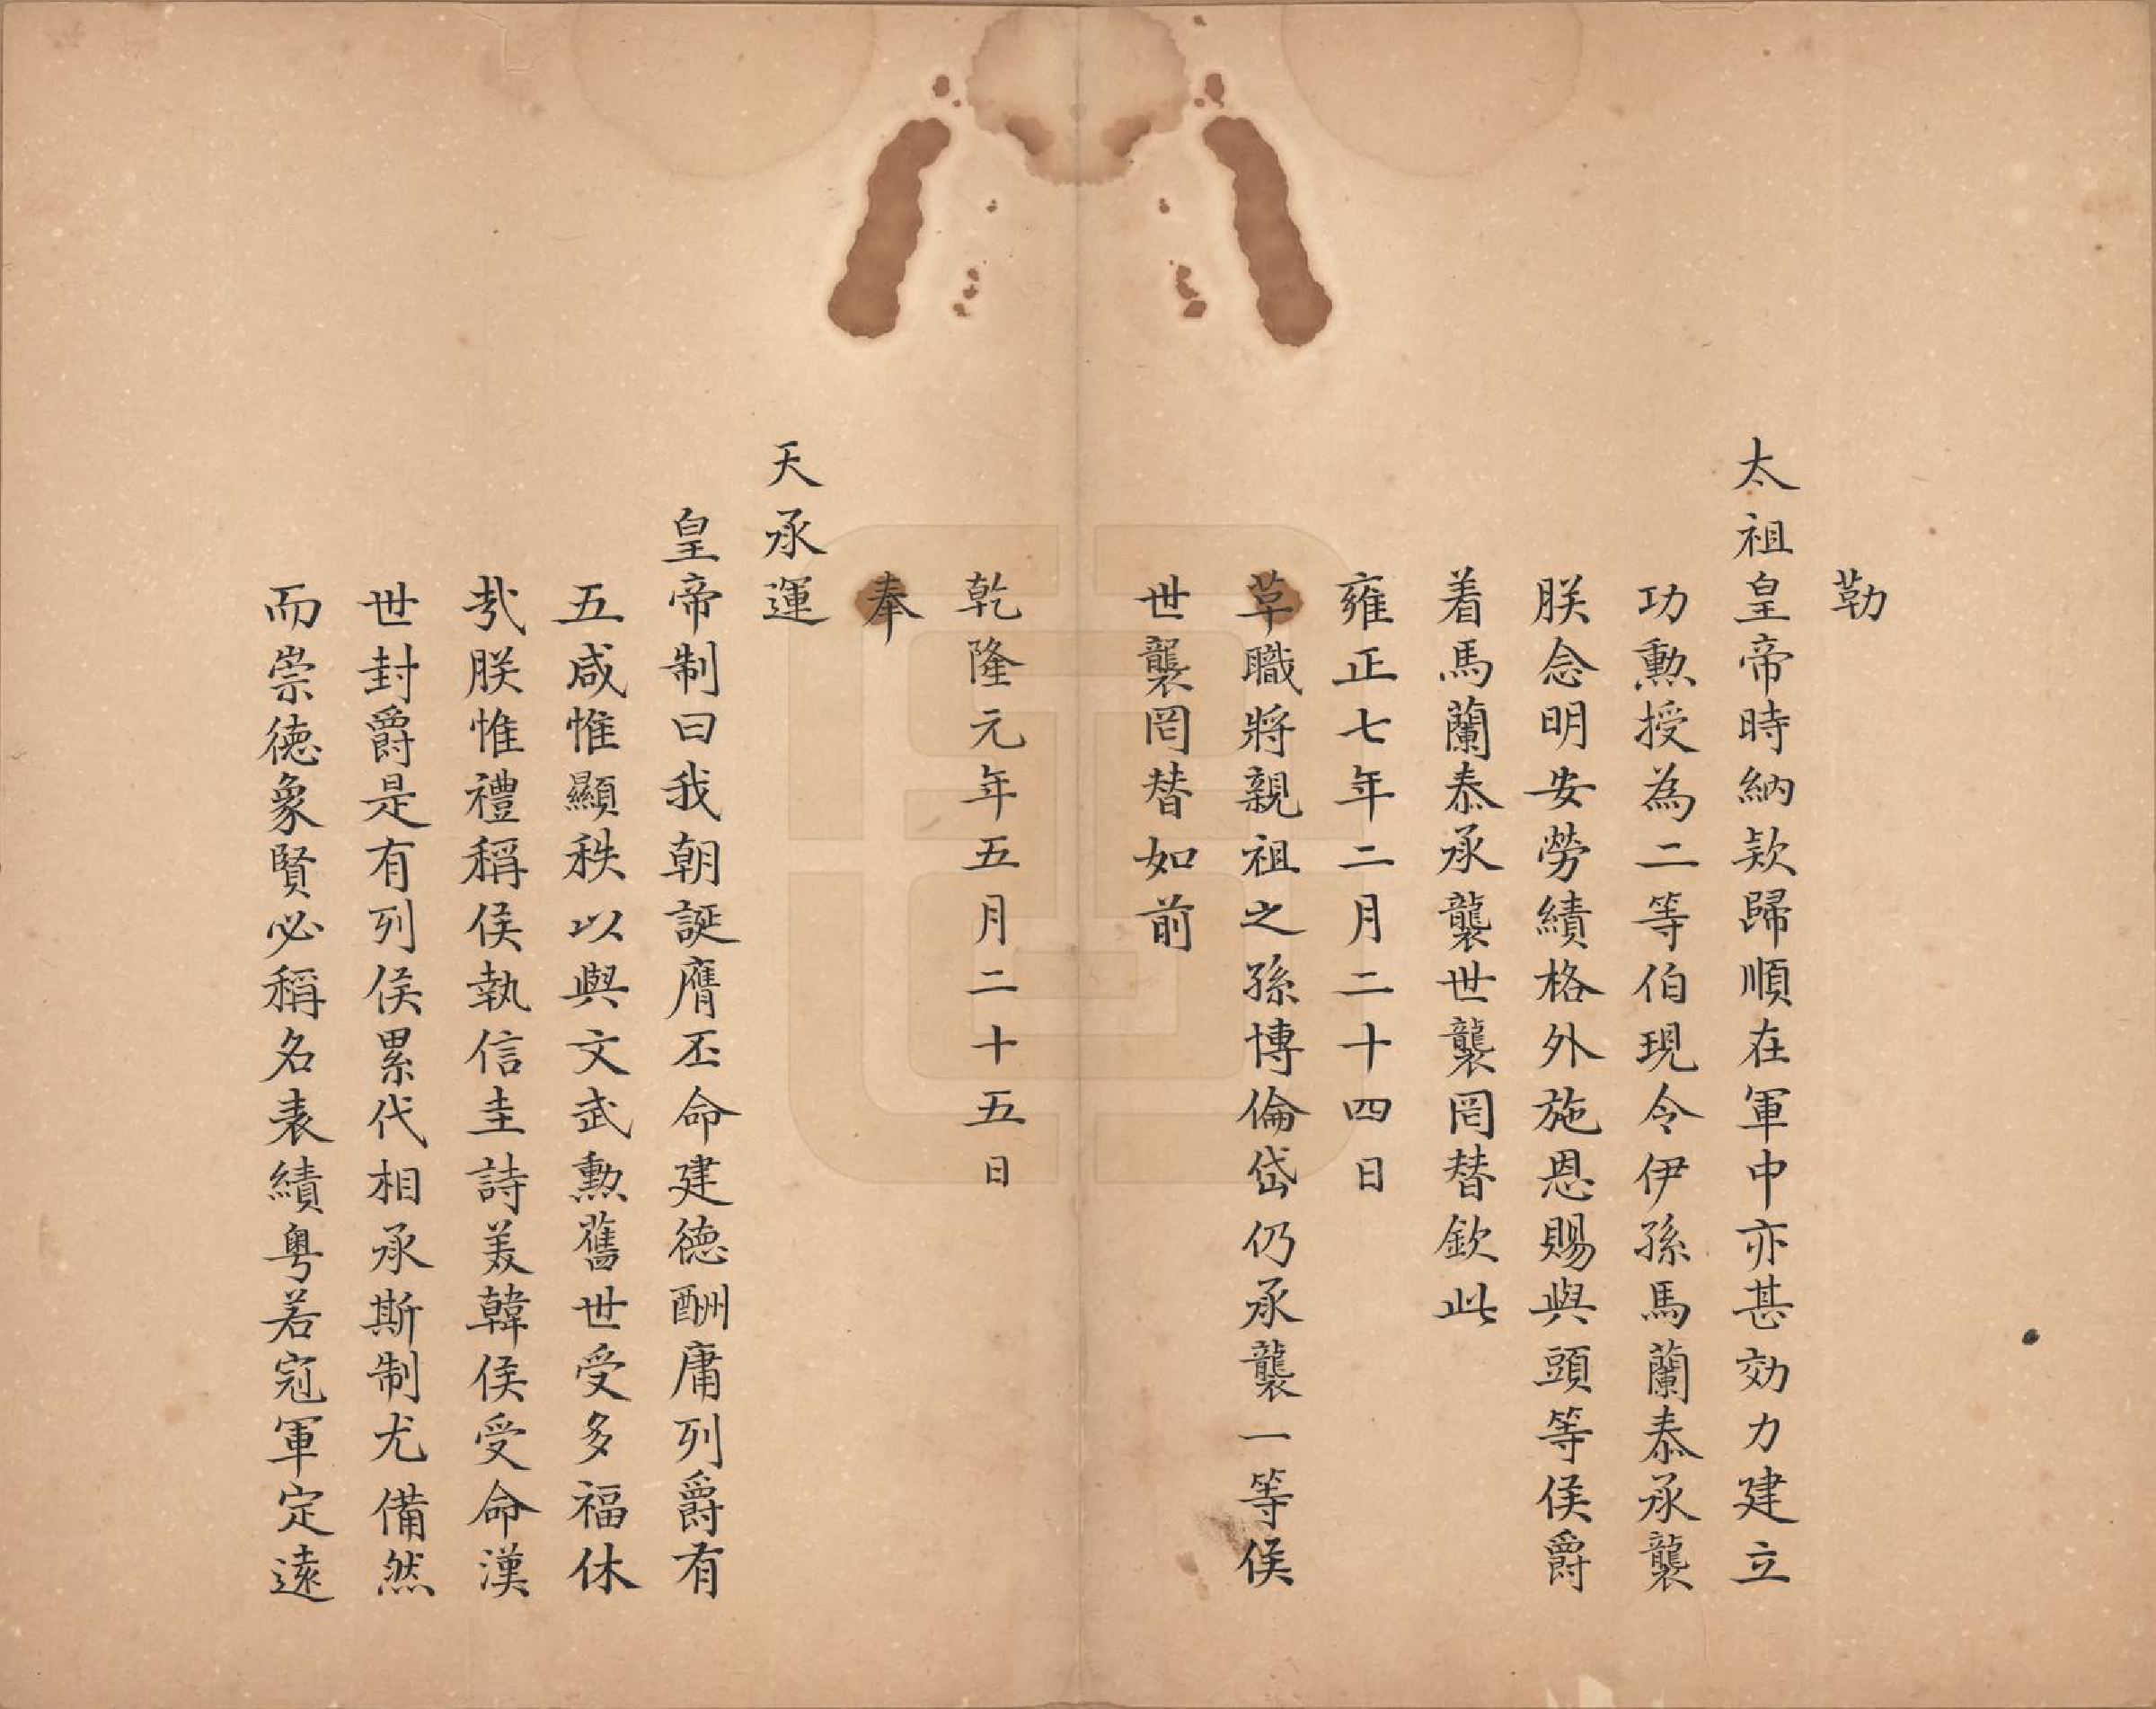 勒
太祖皇帝時納欵歸順在軍中亦甚効力建立
功勲授為二等伯現令伊孫馬蘭泰承襲
朕念明安勞績格外施恩賜與頭等侯爵
着馬蘭泰承襲世襲罔替欽此
雍正七年二月二十四日
草職將親祖之孫博倫岱仍承襲一等侯
世襲罔替如前
乾隆元年五月二十五日
奉
天承運
皇帝制曰我朝誕膺丕命建德酬庸列爵有
五咸惟顯秩以與文武勲舊世受多福休
哉朕惟禮稱侯執信圭詩美韓侯受命漢
世封爵是有列侯累代相承斯制尤備然
而崇德象賢必稱名表績粵若冠軍定遠